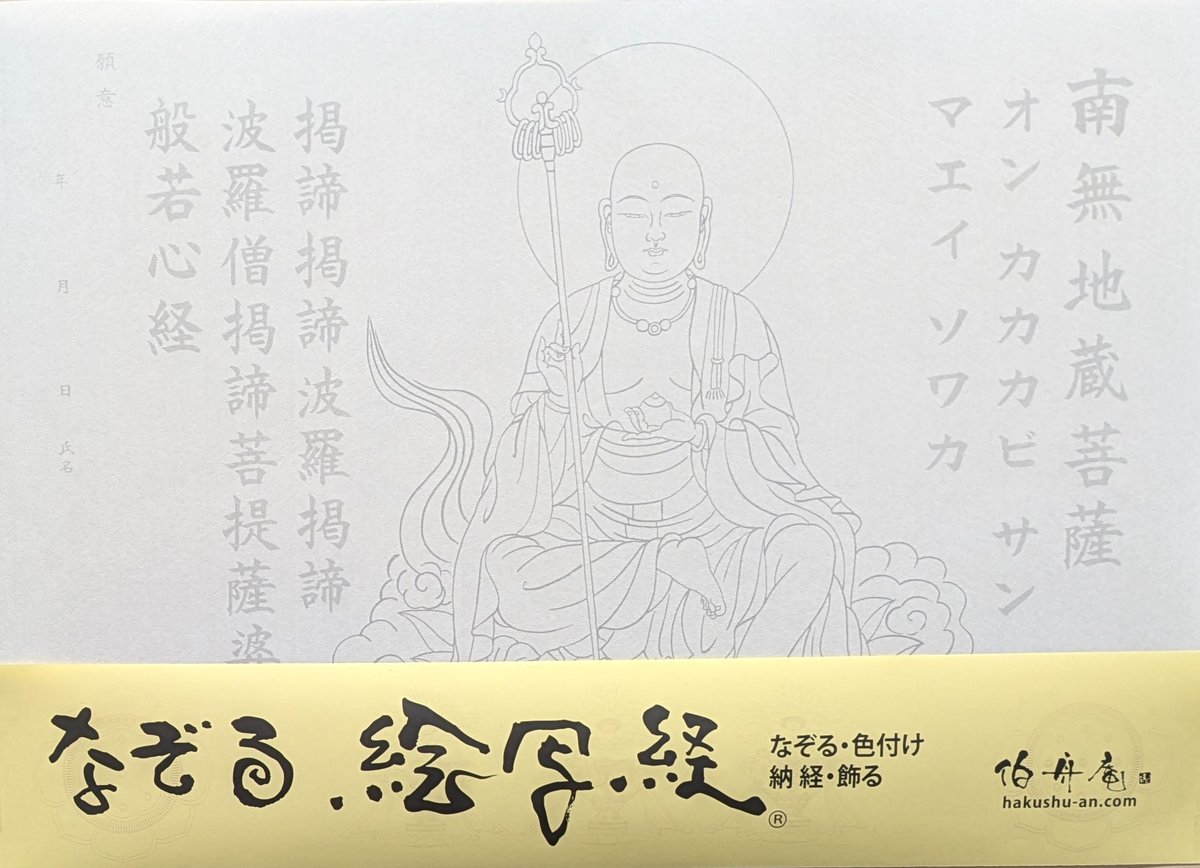 南無地蔵菩薩
オン カカカビ サン
マエイ ソワカ
掲諦掲諦波羅掲諦
波羅僧掲諦菩提薩婆
般若心経
願意
年 月 日 氏名
なぞる絵写経®
なぞる・色付け
納経・飾る
伯舟庵
hakushu-an.com